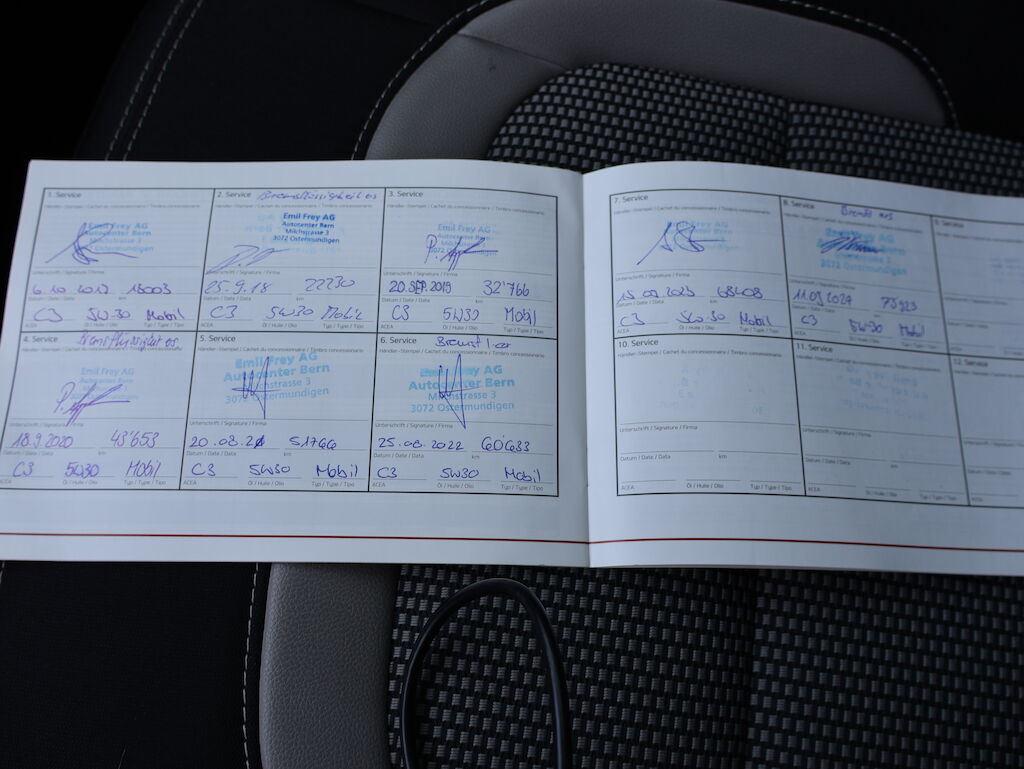 1. Service
Händler-Stempel / Cachet du concessionnaire / Timbro concessionario
Emil Frey AG
Autocenter Bern
Milchstrasse 3
3072 Ostermundigen
Unterschrift / Signature / Firma
6.10.2017 15003
Datum / Date / Data km
C3 5W-30 Mobil
ACEA Öl / Huile / Olio Typ / Type / Tipo
2. Service
Händler-Stempel / Cachet du concessionnaire / Timbro concessionario
Emil Frey AG
Autocenter Bern
Milchstrasse 3
3072 Ostermundigen
Unterschrift / Signature / Firma
25.9.18 22230
Datum / Date / Data km
C3 5W30 Mobil
ACEA Öl / Huile / Olio Typ / Type / Tipo
3. Service
Händler-Stempel / Cachet du concessionnaire / Timbro concessionario
Emil Frey AG
Autocenter Bern
3072 Ostermundigen
Unterschrift / Signature / Firma
20. SEP. 2019 32'766
Datum / Date / Data km
C3 5W30 Mobil
ACEA Öl / Huile / Olio Typ / Type / Tipo
4. Service
Händler-Stempel / Cachet du concessionnaire / Timbro concessionario
Emil Frey AG
Autocenter Bern
Unterschrift / Signature / Firma
18.9.2020 43'653
Datum / Date / Data km
C3 5W30 Mobil
ACEA Öl / Huile / Olio Typ / Type / Tipo
5. Service
Händler-Stempel / Cachet du concessionnaire / Timbro concessionario
Emil Frey AG
Autocenter Bern
Milchstrasse 3
3072 Ostermundigen
Unterschrift / Signature / Firma
20.08.21 51766
Datum / Date / Data km
C3 5W30 Mobil
ACEA Öl / Huile / Olio Typ / Type / Tipo
6. Service
Händler-Stempel / Cachet du concessionnaire / Timbro concessionario
Emil Frey AG
Autocenter Bern
Milchstrasse 3
3072 Ostermundigen
Unterschrift / Signature / Firma
25.08.2022 60'633
Datum / Date / Data km
C3 5W30 Mobil
ACEA Öl / Huile / Olio Typ / Type / Tipo
7. Service
Händler-Stempel / Cachet du concessionnaire / Timbro concessionario
3072 Ostermundigen
Unterschrift / Signature / Firma
2023 68408
Datum / Date / Data km
C3 5W30 Mobil
ACEA Öl / Huile / Olio Typ / Type / Tipo
8. Service
Händler-Stempel / Cachet du concessionnaire / Timbro concessionario
3072 Ostermundigen
Unterschrift / Signature / Firma
2024 75923
Datum / Date / Data km
C3 5W30 Mobil
ACEA Öl / Huile / Olio Typ / Type / Tipo
9. Service
10. Service
Händler-Stempel / Cachet du concessionnaire / Timbro concessionario
Unterschrift / Signature / Firma
Datum / Date / Data km
ACEA Öl / Huile / Olio Typ / Type / Tipo
11. Service
Händler-Stempel / Cachet du concessionnaire / Timbro concessionario
Unterschrift / Signature / Firma
Datum / Date / Data km
ACEA Öl / Huile / Olio Typ / Type / Tipo
12. Service
Unterschrift / Signature
Datum / Date / Data
ACEA